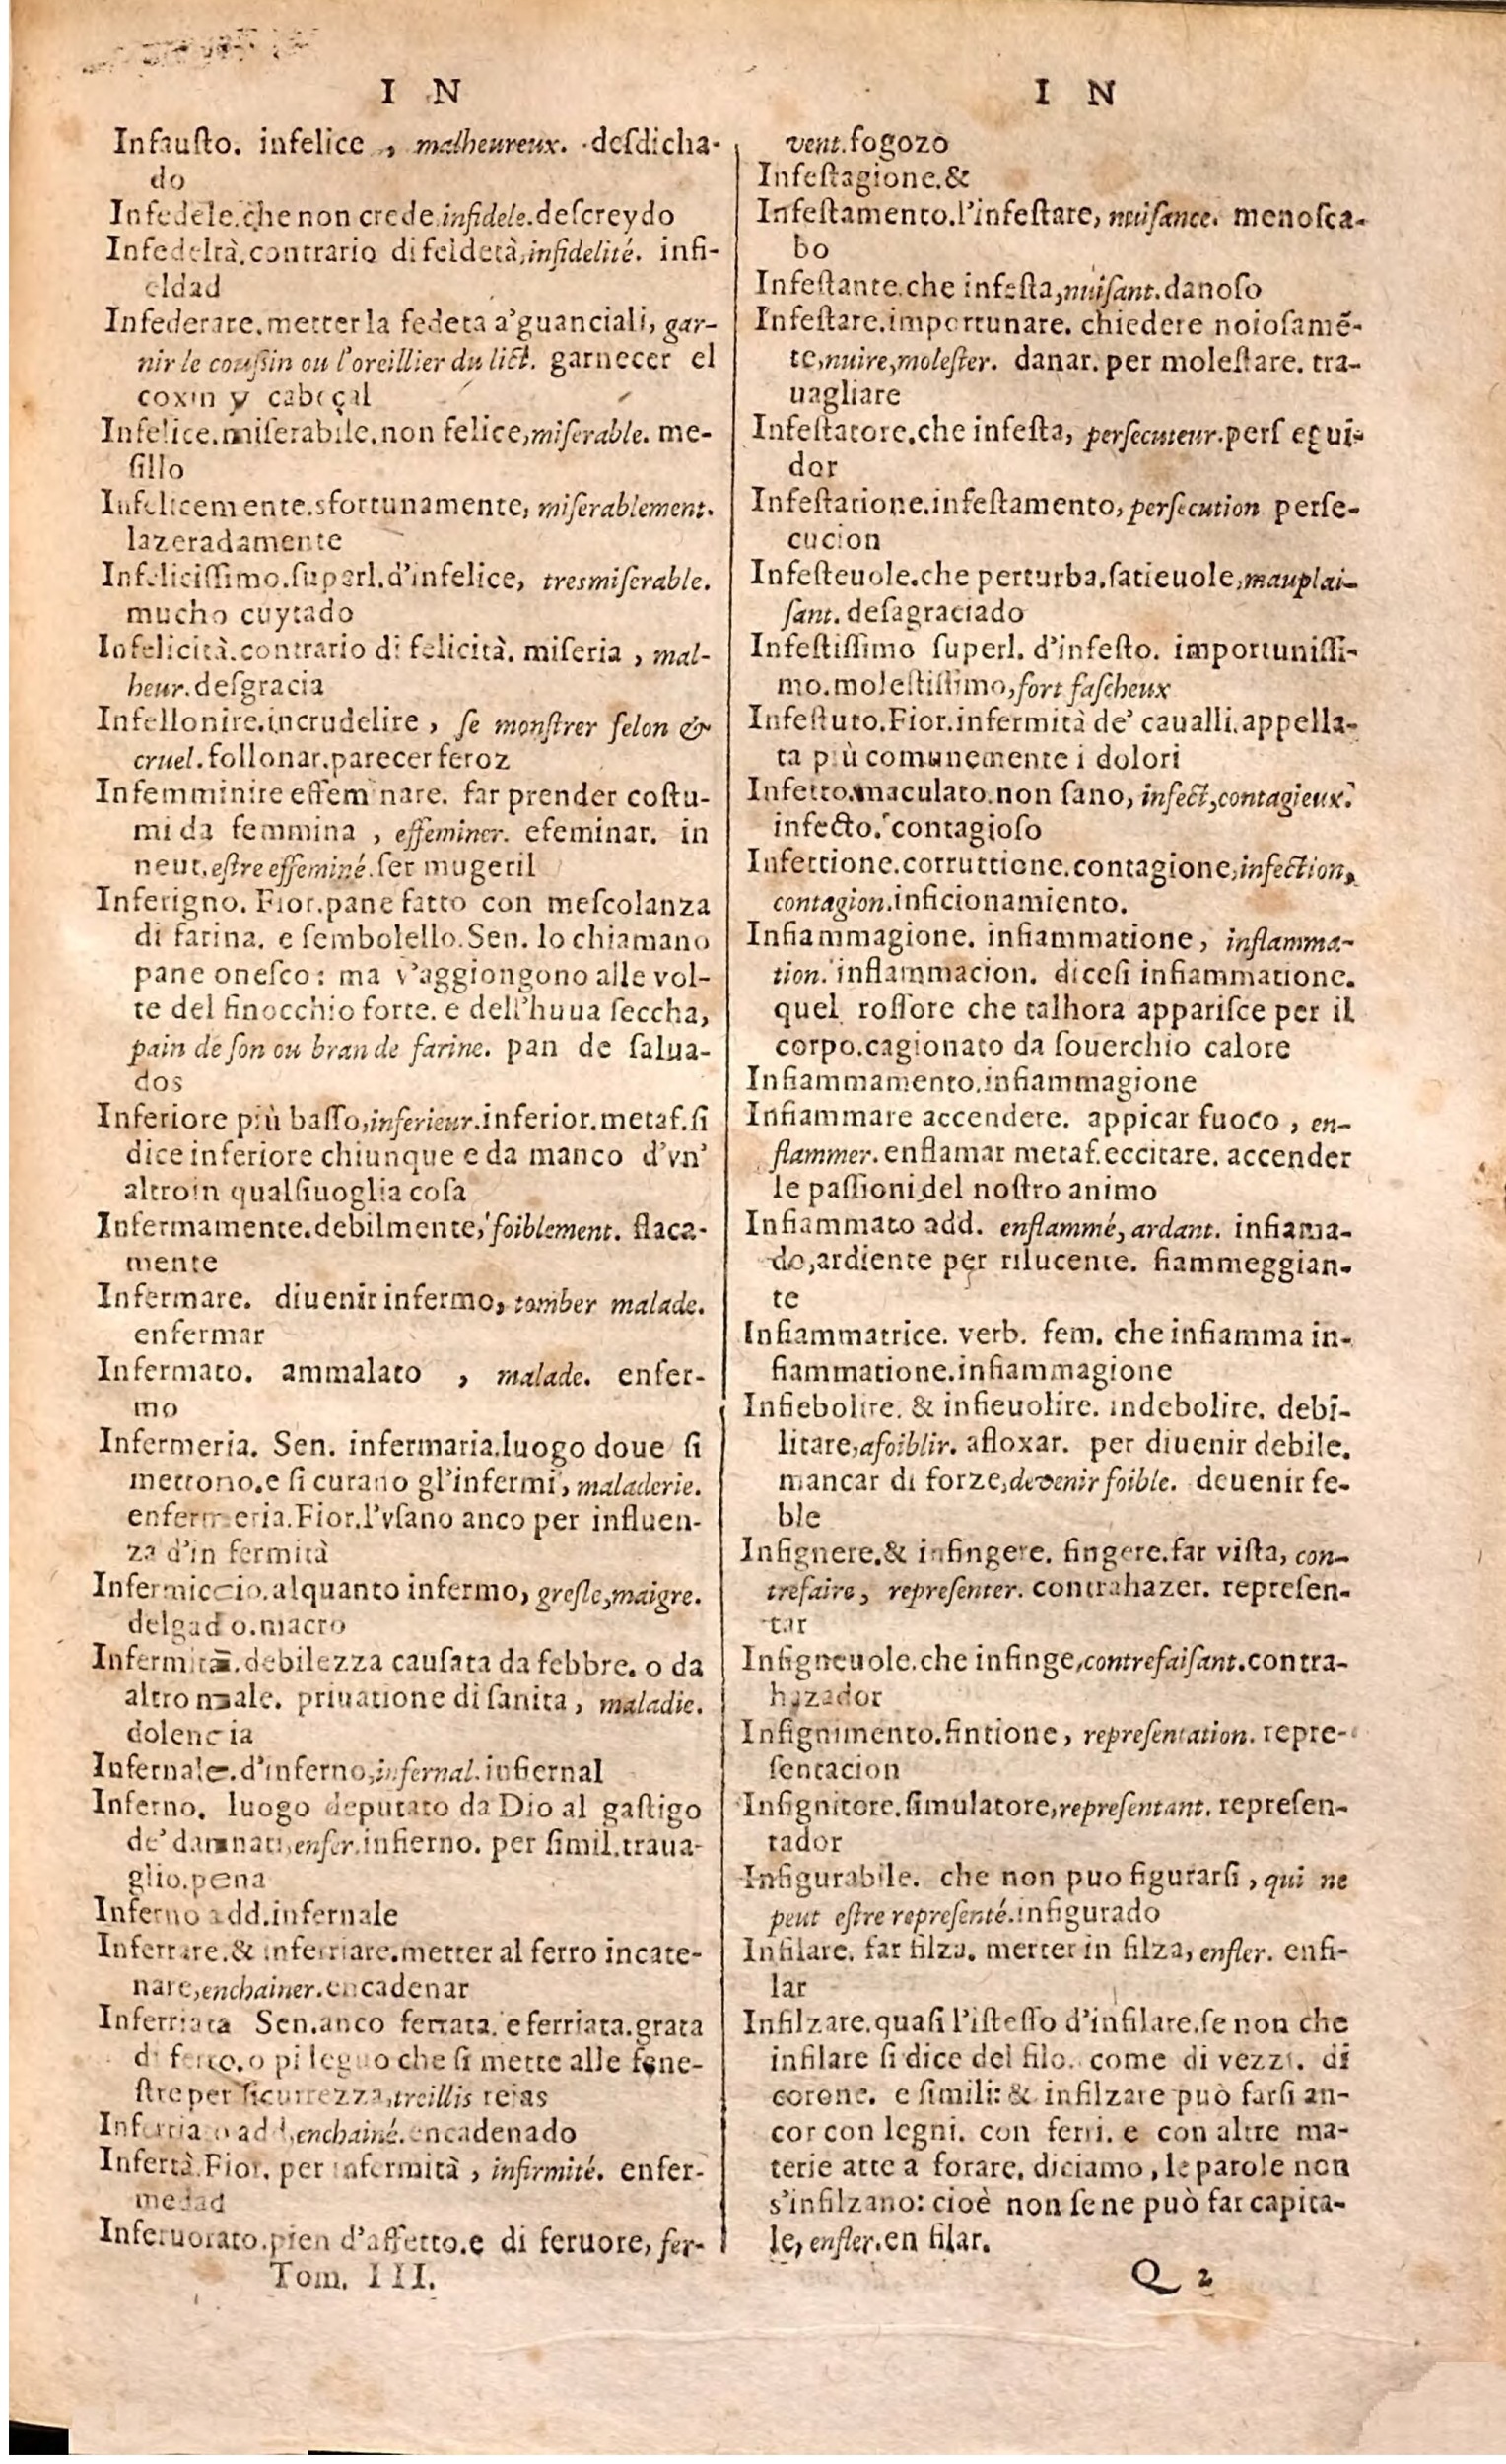 I N
Infauſto. infelice , malheureux. deſdicha-
do
Infedele.che non crede.infidele.deſcreydo
Infedeltà.contrario di feldetà,infidelité. infi-
eldad
Infederare.metter la federa a'guanciali, gar-
nir le couſſin ou l'oreillier du lict. garnecer el
coxin y cabeçal
Infelice.miſerabile.non felice,miſerable. me-
ſillo
Infelicemente.sfortunamente, miſerablement.
lazeradamente
Infeliciſſimo.ſuperl.d'infelice, tresmiſerable.
mucho cuytado
Infelicità.contrario di felicità. miſeria , mal-
heur.deſgracia
Infellonire.incrudelire , ſe monſtrer felon &
cruel.follonar.parecer feroz
Infemminire effeminare. far prender coſtu-
mi da femmina , effeminer. efeminar. in
neut.eſtre effeminé.ſer mugeril
Inferigno. Fior.pane fatto con meſcolanza
di farina. e ſembolello.Sen. lo chiamano
pane oneſco: ma v'aggiongono alle vol-
te del finocchio forte. e dell'huua ſeccha,
pain de ſon ou bran de farine. pan de ſalua-
dos
Inferiore più baſſo,inferieur.inferior.metaf.ſi
dice inferiore chiunque e da manco d'vn'
altroin qualſiuoglia coſa
Infermamente.debilmente,foiblement. flaca-
mente
Infermare. diuenir infermo, tomber malade.
enfermar
Infermato. ammalato , malade. enfer-
mo
Infermeria. Sen. infermaria.luogo doue ſi
mettono.e ſi curano gl'infermi, maladerie.
enfermeria.Fior.l'vſano anco per influen-
za d'in fermità
Infermiccio.alquanto infermo, greſle,maigre.
delgad o.macro
Infermità.debilezza cauſata da febbre. o da
altro male. priuatione di ſanita , maladie.
dolencia
Infernale.d'inferno,infernal.infiernal
Inferno. luogo deputato da Dio al gaſtigo
de' damnati,enfer.infierno. per ſimil.traua-
glio.pena
Inferno add.infernale
Inferrare.& inferriare.metter al ferro incate-
nare,enchainer.encadenar
Inferriata Sen.anco ferrata. e ferriata.grata
di ferro.o pi legno che ſi mette alle fene-
ſtre per ſicurrezza,treillis rejas
Inferriato add.enchainé.encadenado
Infertà.Fior. per infermità , infirmité. enfer-
medad
Inferuorato.pien d'affetto.e di feruore, fer-
Tom. III.
I N
vent.fogozo
Infeſtagione.&
Infeſtamento.l'infeſtare, nuiſance. menoſca-
bo
Infeſtante.che infeſta,nuiſant.danoſo
Infeſtare.importunare. chiedere noioſamẽ-
te,nuire,moleſter. danar. per moleſtare. tra-
uagliare
Infeſtatore.che infeſta, perſecuteur.perſ egui-
dor
Infeſtatione.infeſtamento, perſecution perſe-
cucion
Infeſteuole.che perturba.ſatieuole,mauplai-
ſant. deſagraciado
Infeſtiſſimo ſuperl. d'infeſto. importuniſſi-
mo.moleſtiſſimo,fort faſcheux
Infeſtuto.Fior.infermità de' caualli.appella-
ta più comunemente i dolori
Infetto.maculato.non ſano, infect,contagieux.
infecto. contagioſo
Infettione.corruttione.contagione,infection,
contagion.inficionamiento.
Infiammagione. infiammatione, inflamma-
tion. inflammacion. diceſi infiammatione.
quel roſſore che talhora appariſce per il
corpo.cagionato da ſouerchio calore
Infiammamento.infiammagione
Infiammare accendere. appicar fuoco , en-
flammer. enflamar metaf.eccitare. accender
le paſſioni del noſtro animo
Infiammato add. enflammé, ardant. infiama-
do,ardiente per rilucente. fiammeggian-
te
Infiammatrice. verb. fem. che infiamma in-
fiammatione.infiammagione
Infiebolire. & infieuolire. indebolire. debi-
litare,afoiblir. afloxar. per diuenir debile.
mancar di forze,devenir foible. deuenir fe-
ble
Infignere.& infingere. fingere.far viſta, con-
trefaire, repreſenter. contrahazer. repreſen-
tar
Infigneuole.che infinge,contrefaiſant.contra-
hazador
Infignimento.fintione, repreſentation. repre-
ſentacion
Infignitore.ſimulatore,repreſentant. repreſen-
tador
Infigurabile. che non puo figurarſi , qui ne
peut eſtre repreſenté.infigurado
Infilare. far filza. metter in filza, enfler. enfi-
lar
Infilzare.quaſi l'iſteſſo d'infilare.ſe non che
infilare ſi dice del filo. come di vezzi. di
corone. e ſimili: & infilzare può farſi an-
cor con legni. con ferri. e con altre ma-
terie atte a forare. diciamo , le parole non
s'infilzano: cioè non ſene può far capita-
le, enfler.en filar.
Q 2